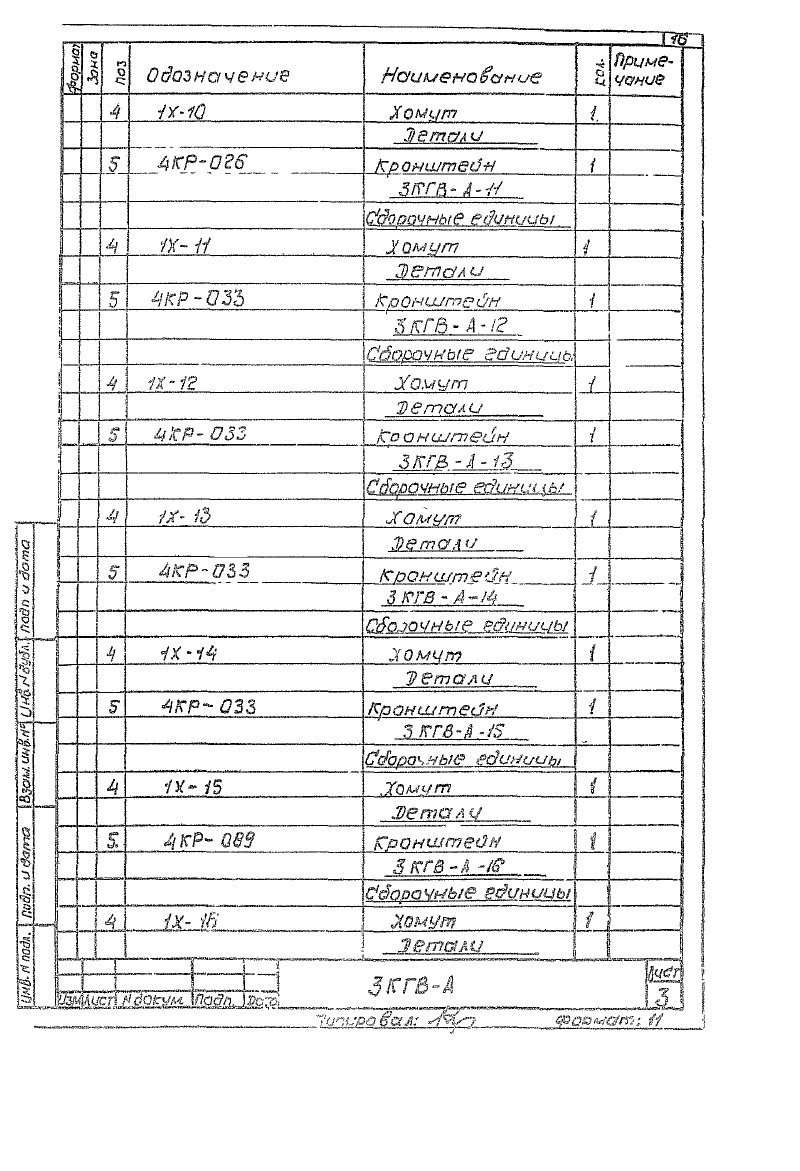 16
Формат Зона Поз Обозначение Наименование Кол. Приме-
чание
4 1Х-10 Хомут 1
Детали
5 4КР-026 Кронштейн 1
3КГВ-А-11
Сборочные единицы
4 1Х-11 Хомут 1
Детали
5 4КР-033 Кронштейн 1
3КГВ-А-12
Сборочные единицы
4 1Х-12 Хомут 1
Детали
5 4КР-033 Кронштейн 1
3КГВ-А-13
Сборочные единицы
4 1Х-13 Хомут 1
Детали
5 4КР-033 Кронштейн 1
3КГВ-А-14
Сборочные единицы
4 1Х-14 Хомут 1
Детали
5 4КР-033 Кронштейн 1
3КГВ-А-15
Сборочные единицы
4 1Х-15 Хомут 1
Детали
5 4КР-089 Кронштейн 1
3КГВ-А-16
Сборочные единицы
4 1Х-16 Хомут 1
Детали
Инв. N подл. Подп. и дата Взам. инв. № Инв. N дубл. Подп и дата
Изм Лист N докум. Подп. Дата
3КГВ-А
Лист
3
Копировал:
Формат: 11